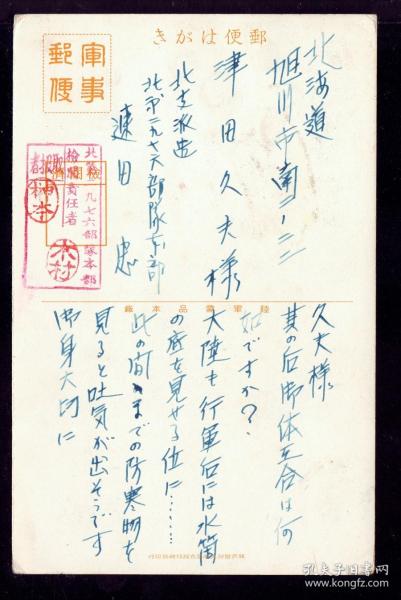 郵便はがき
軍事
郵便
北海道
旭川市南一ノ二二
津田久夫様
北支派遣
北第二九七六部隊本部
速田忠
検閲済
九七六部隊本部
検閲責任者
木村
陸軍恤品本廠
久夫様
其の后御体工合は何
如ですか?
大陸も行軍后には水筒
の底を見せる位に……
此の間までの防寒物を
見ると吐気が出そうです
御身大切に
孔夫子旧书网
www.kongfz.com